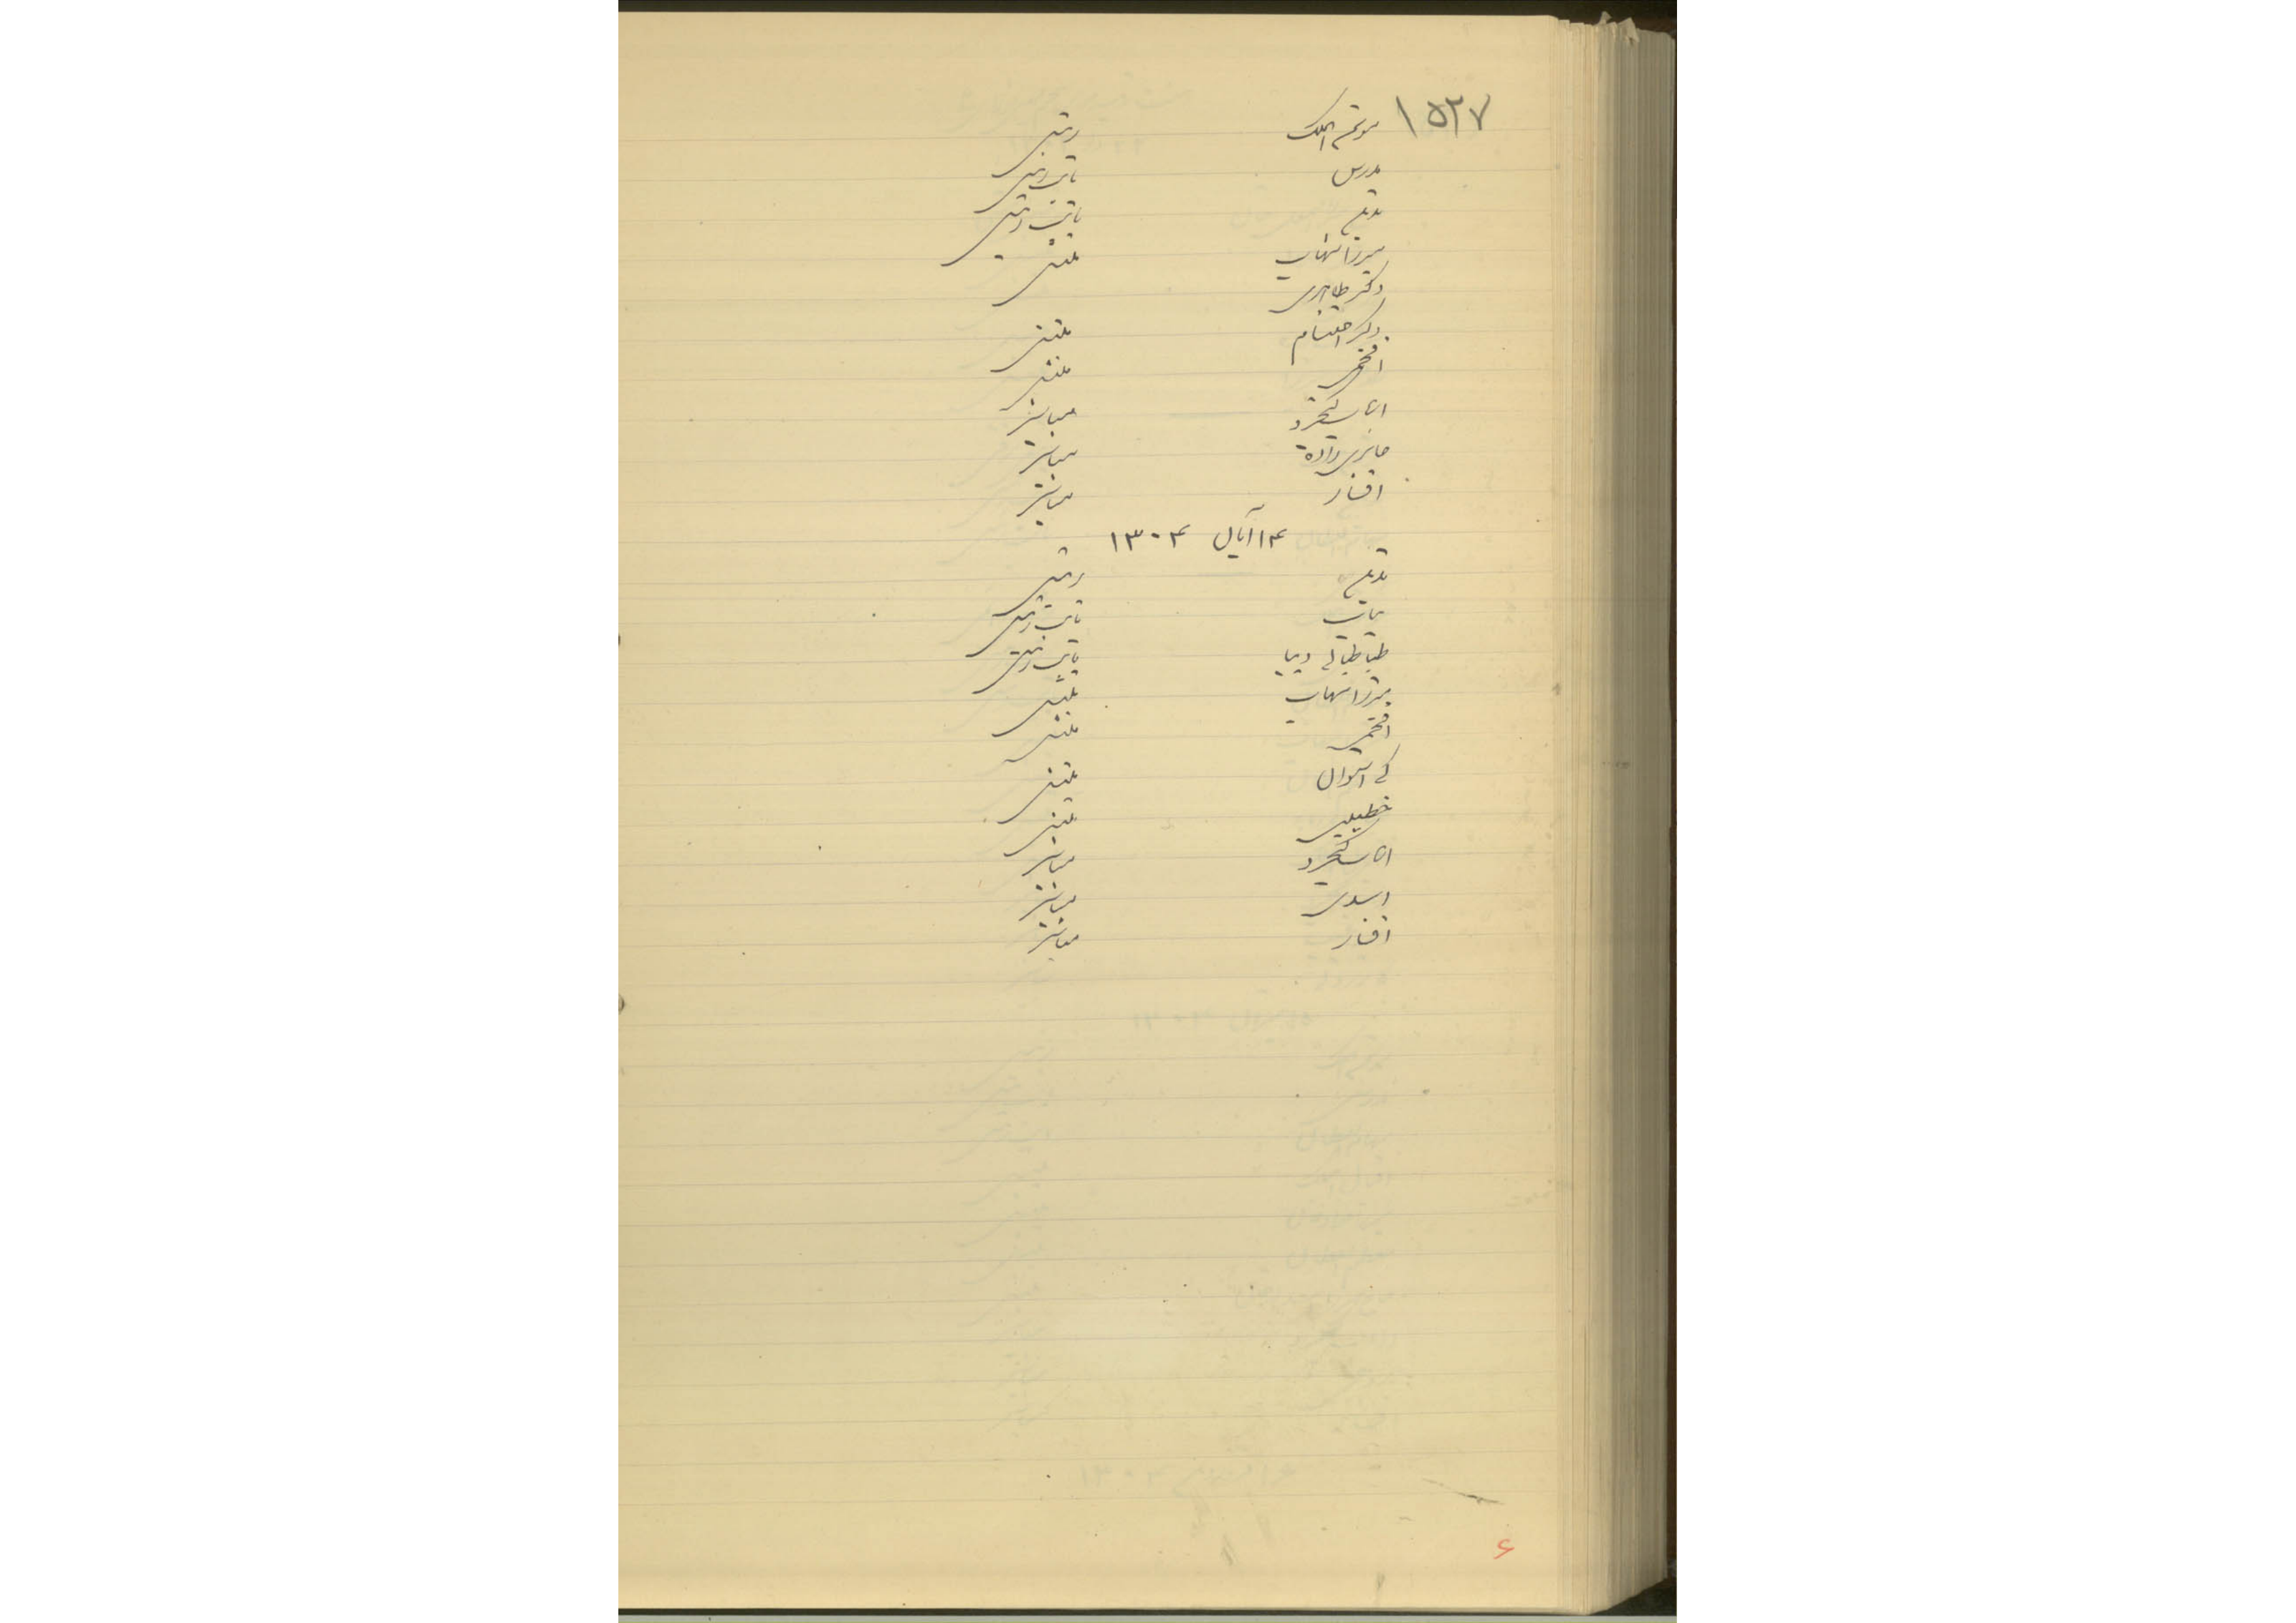 ۱۵۲۷
مؤتمن الملک رئیس
مدرس نایب رئیس
تدین نایب رئیس
میرزا شهاب منشی
دکتر طاهری
دکتر احتشام منشی
افخمی منشی
ارباب کیخسرو مباشر
حائری زاده مباشر
افشار مباشر
۱۴ آبان ۱۳۰۴
تدین رئیس
بیات نایب رئیس
طباطبائی دیبا نایب رئیس
میرزا شهاب منشی
افخمی منشی
کی استوان منشی
خطیبی منشی
ارباب کیخسرو مباشر
اسدی مباشر
افشار مباشر
۶